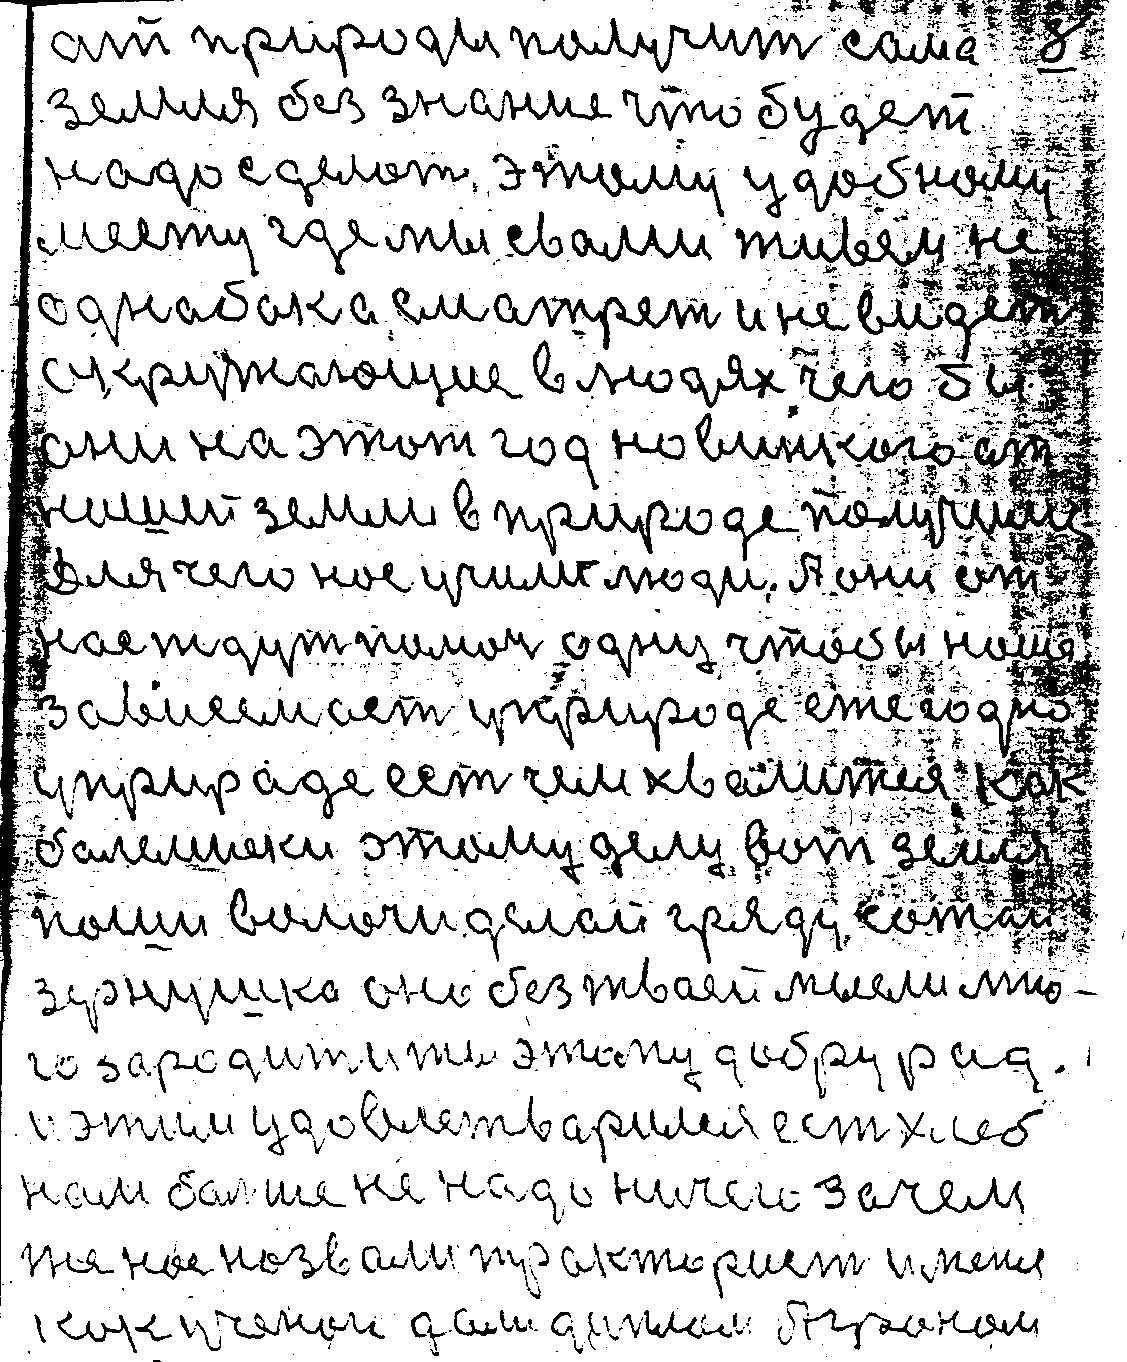 ат природы получит сама 8
земля без знание что будет
надо сделат, этому удобному
месту где мы свами живем не
однабока сматрет и не видет
сукружающие в людях, чего бы
они на этот год новинкого ат
нашей земли в природе получили
Для чего нас учили люди. А они от
нас ждут помоч одну чтобы наша
зависемаст уприроде ежегодно
уприраде ест чем хвалится, как
балелшеки этому делу вот земля
паши волочи делай гряду, сажай
зернушка оно без твоей мысли мно-
го зародит и ты этаму добру рад.
и этим удовлетварился ест хлеб
нам балше не надо ничего зачем
же нас назвали тракторист и меня
как ученои дали диплом Агроном